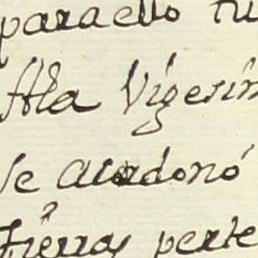 para ello tu
Ala Vigesim
se acodonó
tierras perte